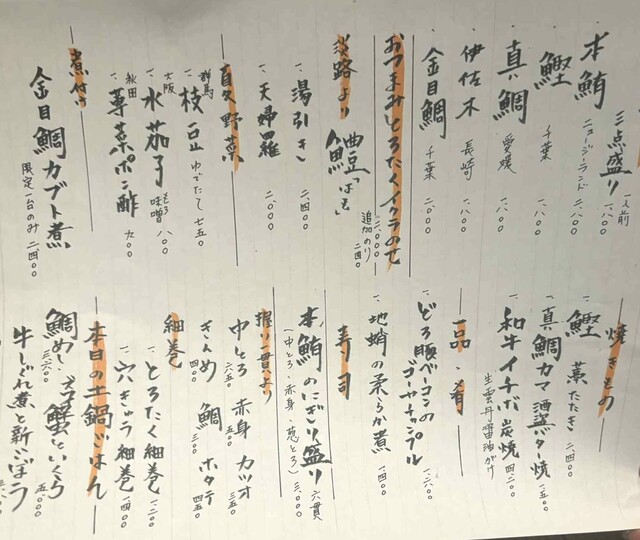 三点盛り 一人前 一、八〇〇
本鮪 ニュージーランド 二、八〇〇
鰹 千葉 一、八〇〇
真鯛 愛媛 一、八〇〇
伊佐木 長崎 一、八〇〇
金目鯛 千葉 二、〇〇〇
おつまみとろたくイクラのせ 二、〇〇〇
追加のり 二四〇
淡路より 鱧「はも」
一、湯引き 二、四〇〇
一、天婦羅 二、〇〇〇
夏野菜
一、枝豆 群馬 ゆでたて 七五〇
一、水茄子 大阪 もろ味噌 八〇〇
一、蓴菜ポン酢 秋田 九〇〇
煮付け
金目鯛カブト煮
限定一台のみ 二、四〇〇
焼きもの
一、鰹 藁たたき 二、四〇〇
一、真鯛カマ酒盗バター焼 一、五〇〇
一、和牛イチボ炭焼 四、二〇〇
生雲丹醤油がけ
一品・肴
一、どろ豚ベーコンの
ゴーヤチャンプル 一、二〇〇
一、地蛸の柔らか煮 一、四〇〇
寿司
本鮪のにぎり盛り 六貫
(中とろ・赤身・炙とろ) 三、〇〇〇
握り一貫より
中とろ 六五〇 赤身 五〇〇 カツオ 三五〇
きんめ 四〇〇 鯛 三〇〇 ホタテ 四五〇
細巻
一、とろたく細巻 一、二〇〇
一、穴きゅう細巻 一、四〇〇
本日の土鍋ごはん
鯛めし 三、六〇〇 蟹といくら 五、〇〇〇
牛しぐれ煮と新ごぼう